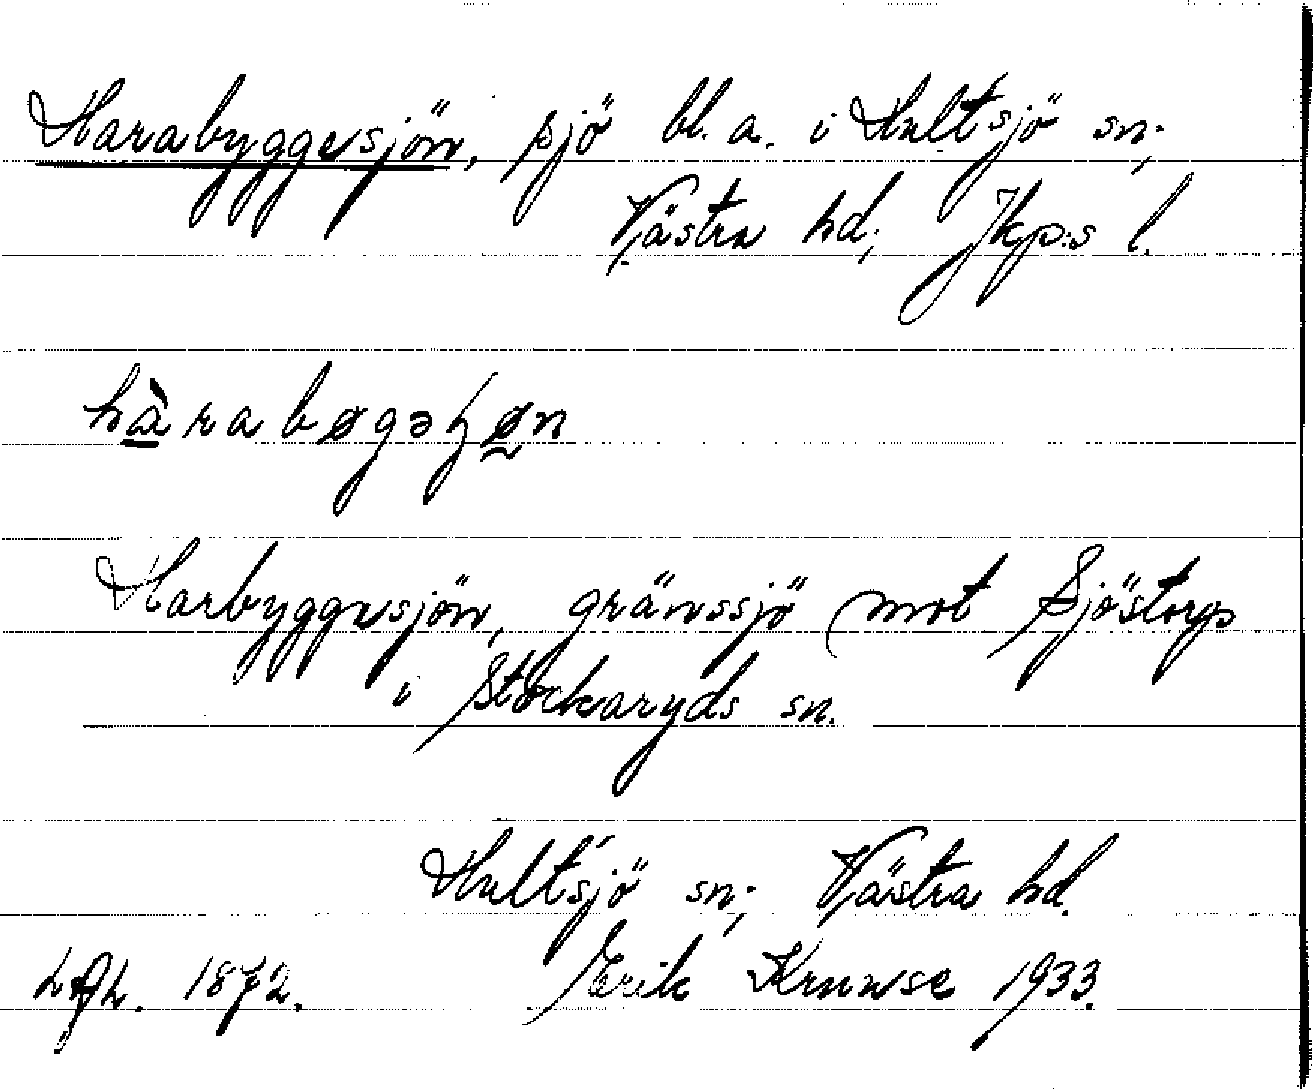 Harabyggesjön, sjö bl. a. i Hultsjö sn;
Västra hd; Jkp:s l.
hàrabøgəɧøn
Harbyggesjön, gränssjö mot Sjöstorp
i Stockaryds sn.
Hultsjö sn; Västra hd.
1872. Erik Krunse 1933.